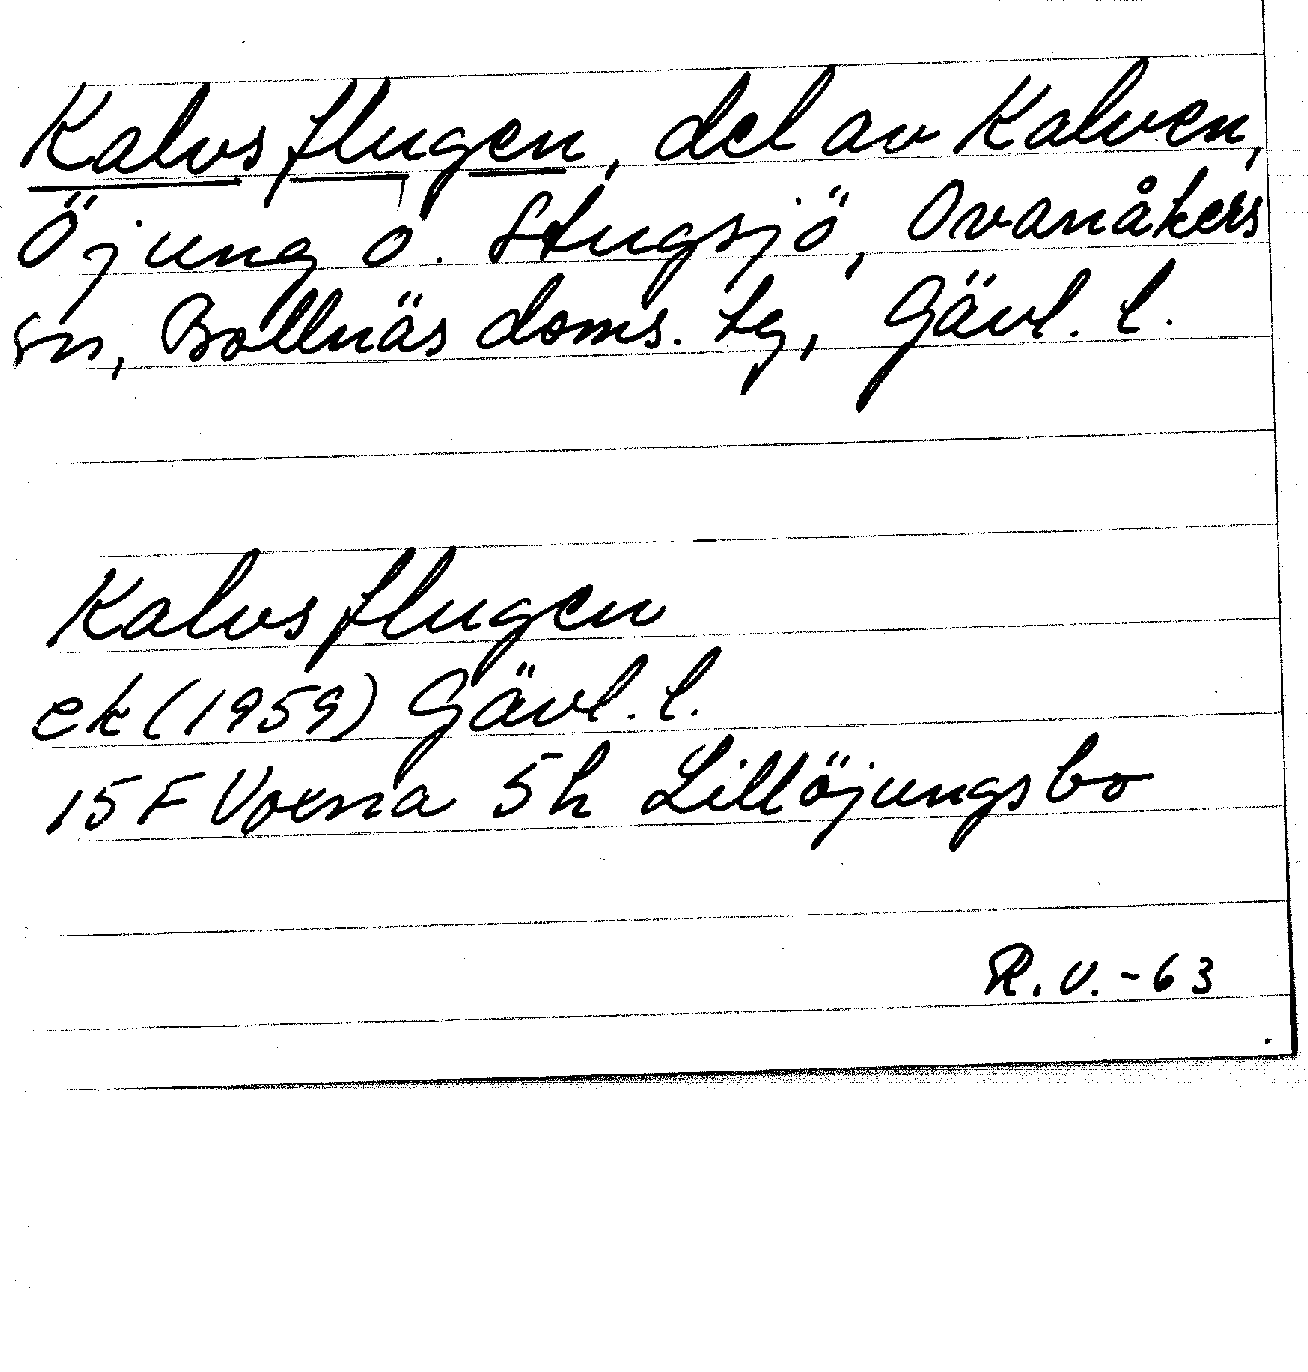 Kalvsflugen, del av Kalven,
Öjung o. Stugsjö, Ovanåkers
sn, Bollnäs doms. tg, Gävl. l.
Kalvsflugen
ek (1959) Gävl. l.
15 F Voxna 5h Lillöjungsbo
R.V.-63